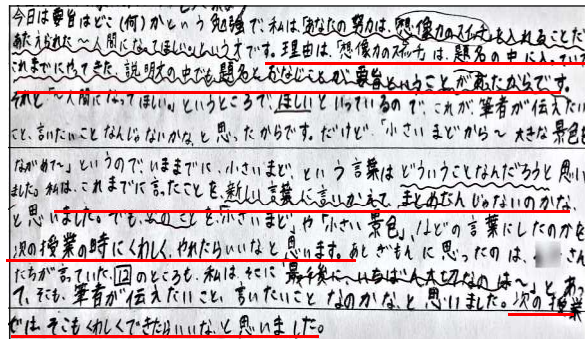 今日は要旨はどこ(何)かという勉強で、私は「あなたの努力は、「想像力のスイッチ」を入れることだ
あたえられた〜人間になってほしい。」という文です。理由は、「想像力のスイッチ」は、題名の中に入ってい
これまでにやってきた、説明文の中でも題名とおなじことが要旨ということがあったからです。
それと「〜人間になってほしい。」というところで、ほしいといっているので、これが、筆者が伝えたい
こと、言いたいことなんじゃないかな、と思ったからです。だけど、「小さいまどから〜大きな景色を
ながめて〜」というので、いままでに、小さいまど、という言葉はどういうことなんだろうと思い
ました。私は、これまでに言ったことを、新しい言葉に言いかえて、まとめたんじゃないのかな、
と思いました。でも、そのことを「小さいまど」や「小さい景色」、などの言葉にしたのかを
次の授業の時にくわしく、やれたらいいなと思います。あとぎもんに思ったのは、 さん
たちが言っていた、回のところも、私は、そこに「最後に〜いちばん大切なのは〜」とあっ
て、そこも、筆者が伝えたいこと、言いたいことなのかな、と思いました。次の授業
では、そこもくわしくできたらいいな、と思いました。